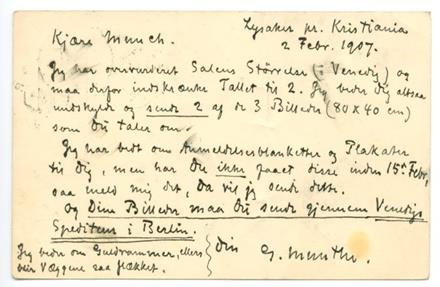 Lysaker pr. Kristiania
2 Febr. 1907.
Kjære Munch.
Jeg har overvurderet Salens Størrelse (i Venedig) og
maa derfor indskrænke Tallet til 2. Jeg beder Dig altsaa
undskylde og sende 2 af de 3 Billeder (80 x 40 cm)
som Du taler om.
Jeg har bedt om Anmeldelsesblanketter og Plakater
til Dig, men har Du ikke faaet disse inden 15de Febr,
saa meld mig det, da vil jeg sende dette.
Og Dine Billeder maa Du sende gjennem Venedigs
Speditør i Berlin.
Jeg beder om Guldrammer, ellers
blir Væggene saa flækket.
Din G. Munthe.